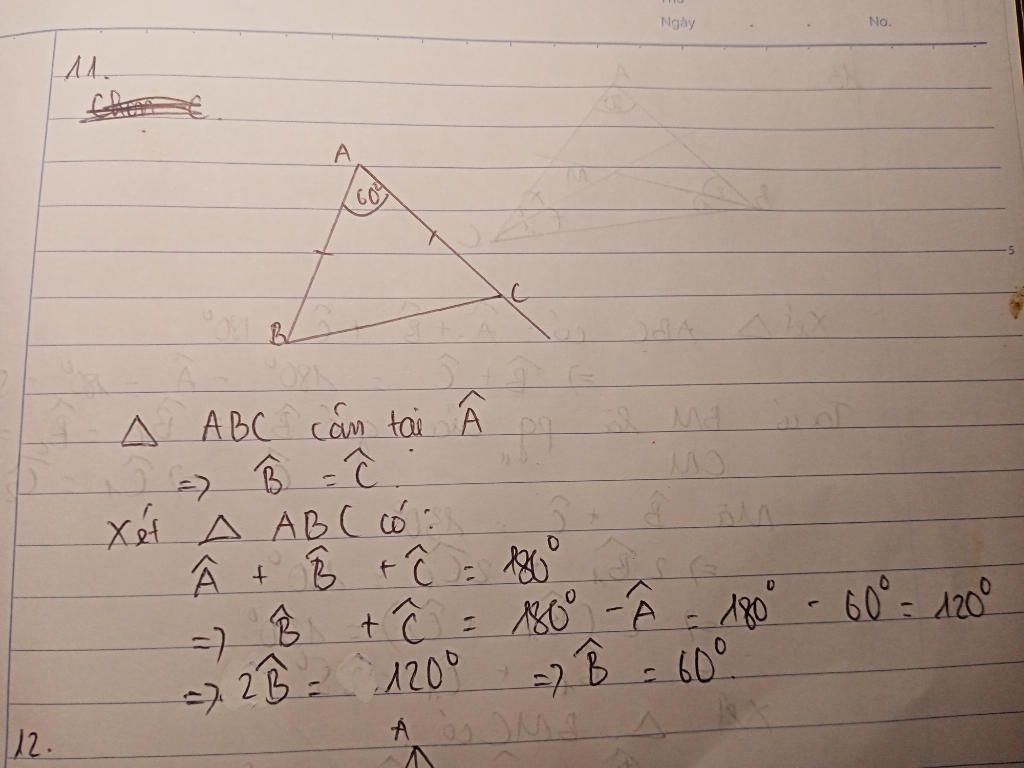 Thứ
Ngày . . No.
11.
A
60°
5
C
B
△ ABC cân tại Â
=> B̂ = Ĉ.
Xét △ ABC có:
Â + B̂ + Ĉ = 180°
=> B̂ + Ĉ = 180° - Â = 180° - 60° = 120°
=> 2B̂ = 120° => B̂ = 60°.
12.
A